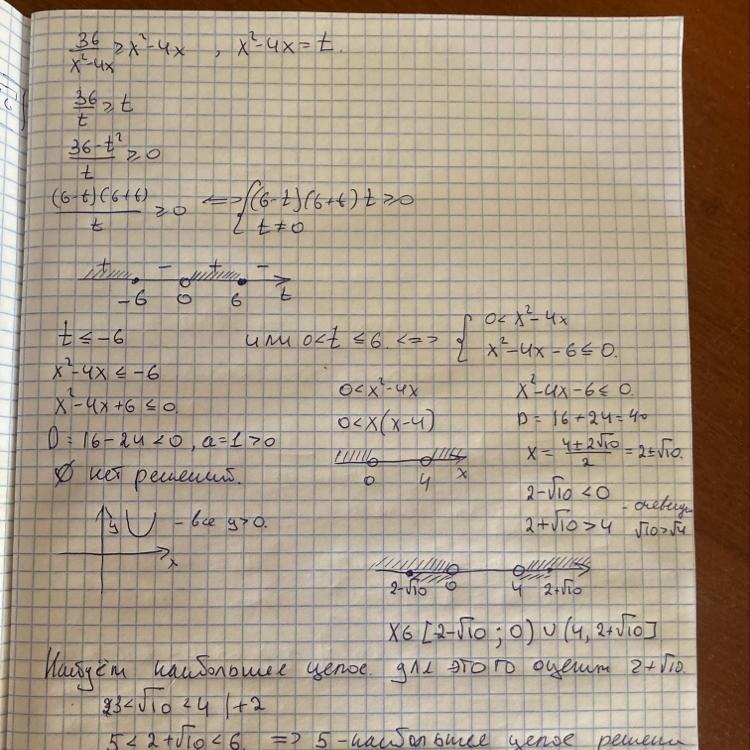 36/(x²-4x) ≥ x²-4x , x²-4x = t.
36/t ≥ t
(36-t²)/t ≥ 0
(6-t)(6+t)/t ≥ 0 <=> { (6-t)(6+t)t ≥ 0
t ≠ 0
+ - + -
-6 0 6 t
t ≤ -6
x²-4x ≤ -6
x²-4x+6 ≤ 0
D = 16-24 < 0, a=1>0
∅ нет решений.
y - все y>0.
x
или 0<t ≤ 6 <=> { 0 < x²-4x
x²-4x-6 ≤ 0.
0 < x²-4x
0 < x(x-4)
0 4 x
x²-4x-6 ≤ 0
D = 16+24=40
x = (4±2√10)/2 = 2±√10.
2-√10 < 0
2+√10 > 4 - очевидн
√10>√4
2-√10 0 4 2+√10
x ∈ [2-√10 ; 0) ∪ (4, 2+√10]
Найдём наибольшее целое. для этого оценим 2+√10.
3<√10<4 | +2
5 < 2+√10 < 6 => 5 - наибольшее целое решени